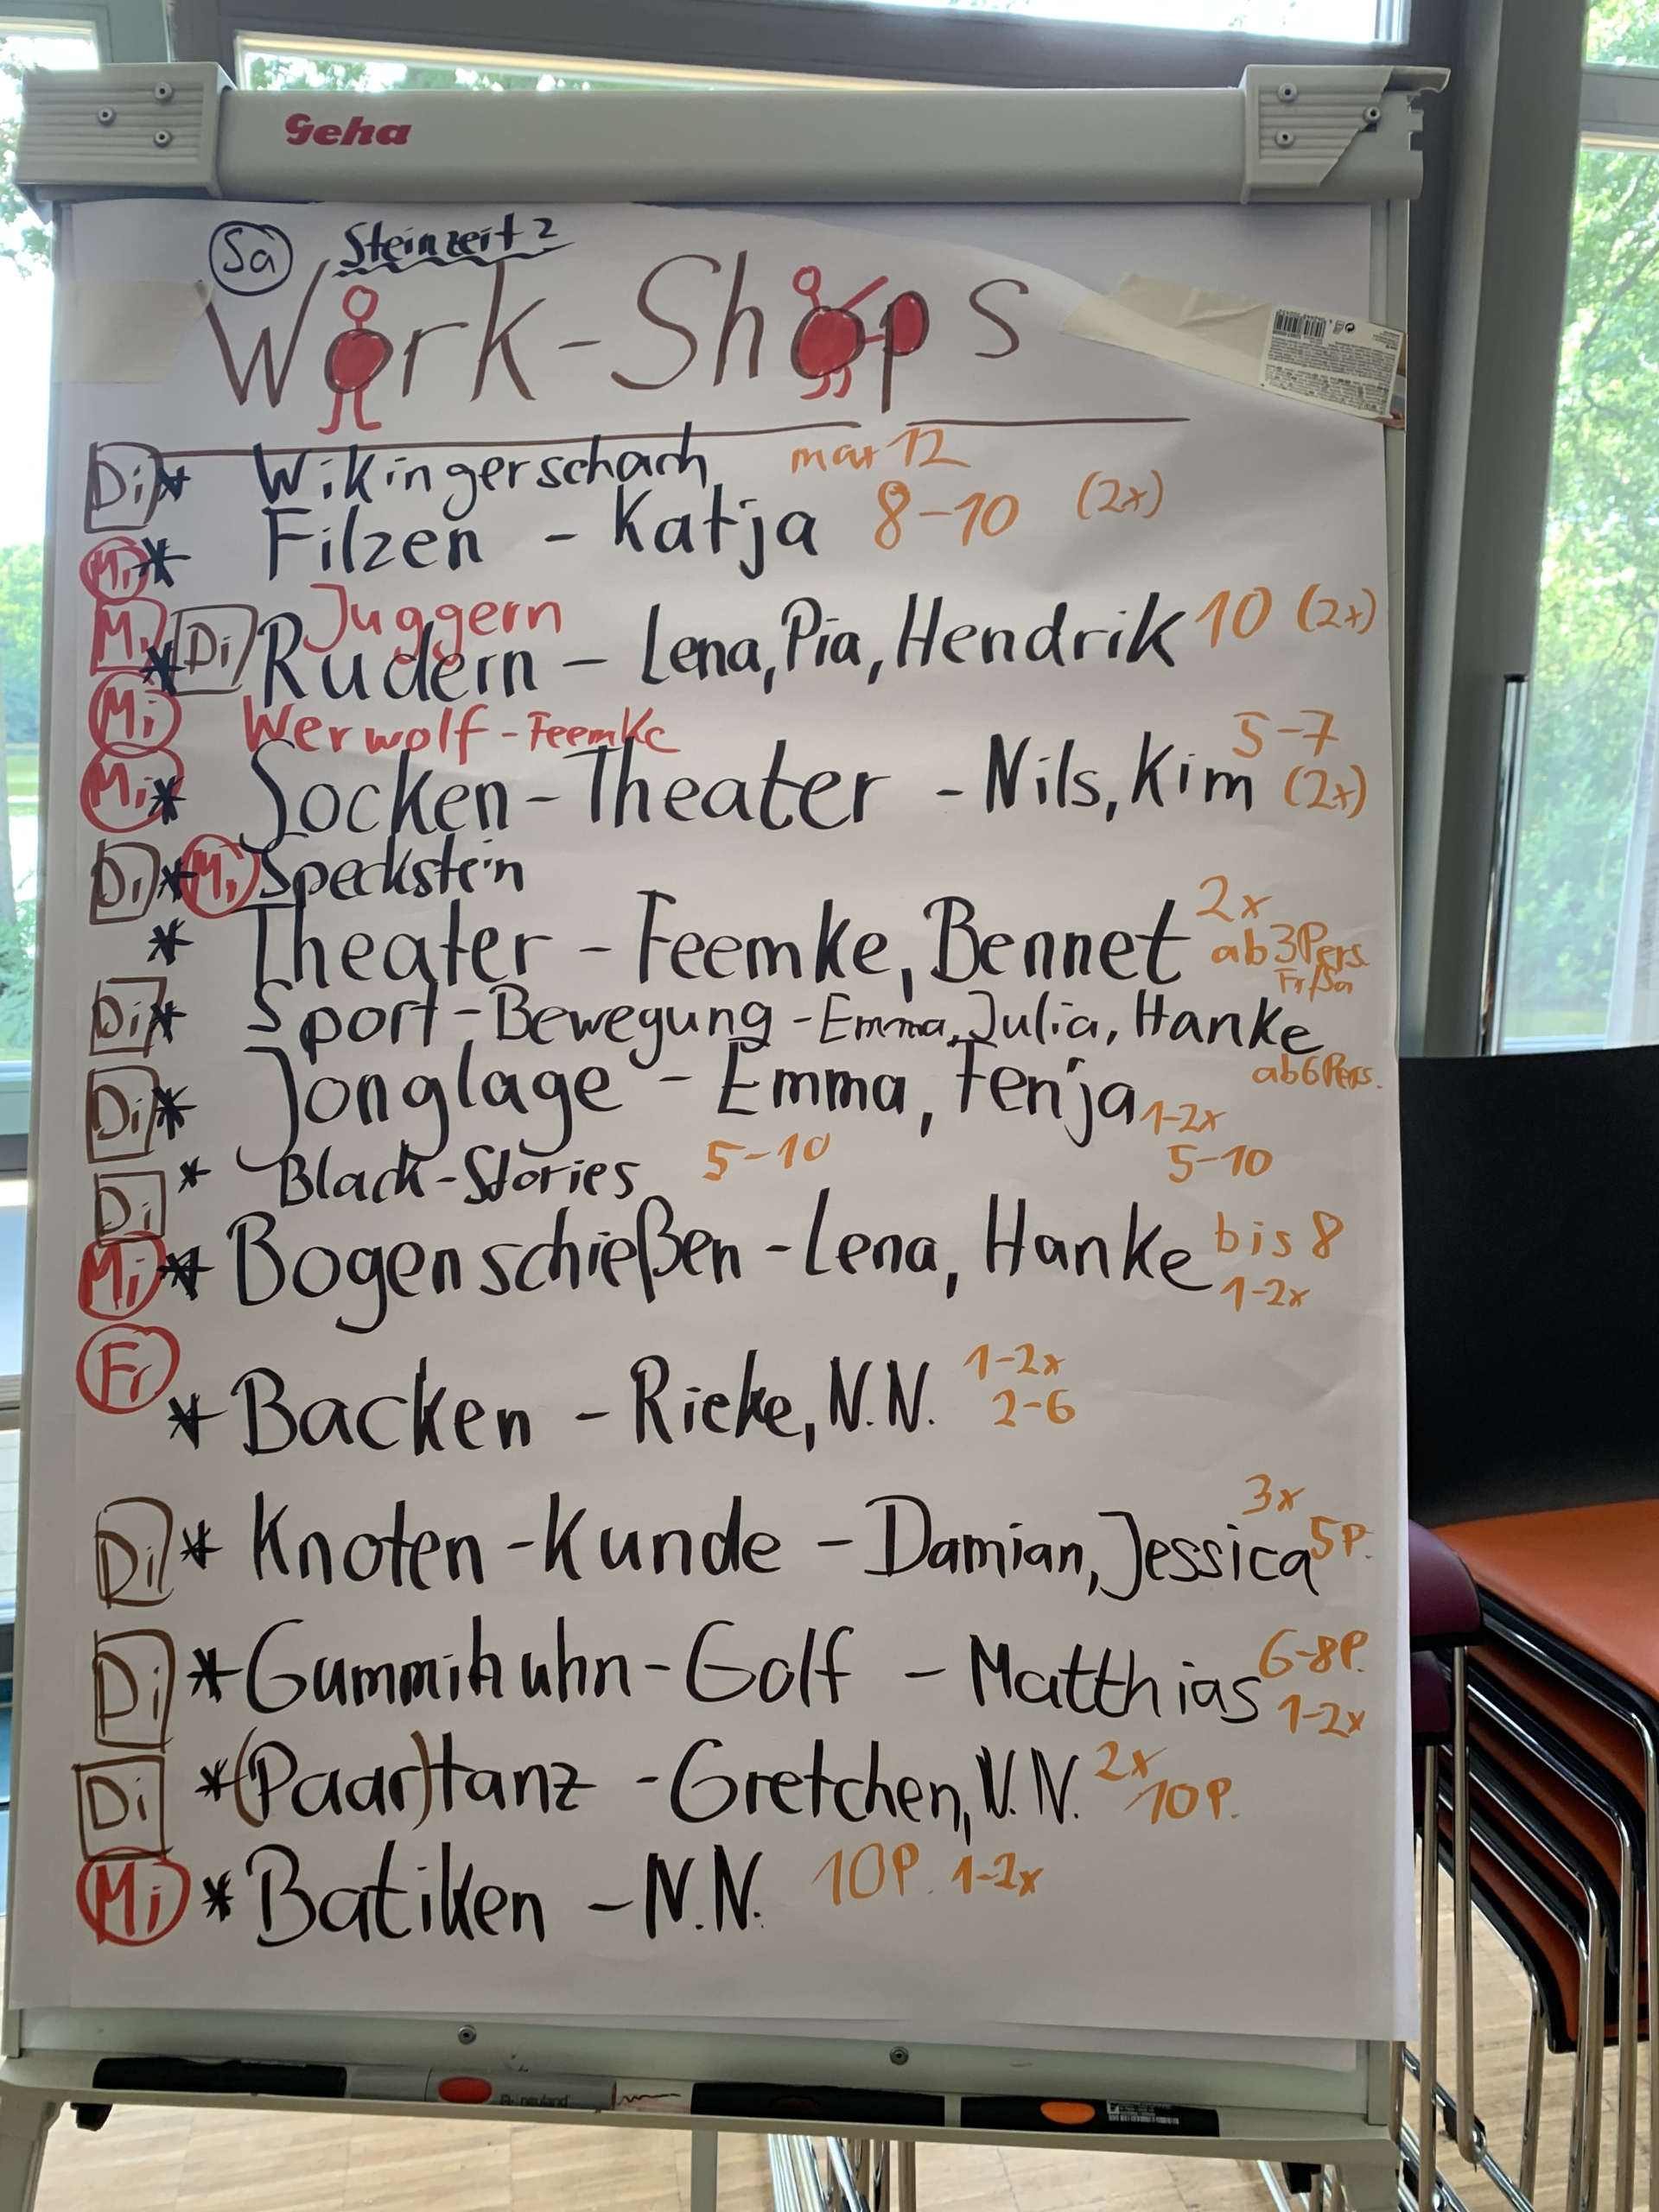 Geha
Sa Steinzeit 2
Work-Shops
Di * Wikingerschach max 12
Mi * Filzen - Katja 8-10 (2x)
Mi Juggern
* Di Rudern - Lena, Pia, Hendrik 10 (2x)
Mi Werwolf - Feemke
Mi * Socken-Theater - Nils, Kim 5-7 (2x)
Di * Mi Speckstein
* Theater - Feemke, Bennet 2x ab 3 Pers.
Fr/Sa
Di * Sport-Bewegung - Emma, Julia, Hanke
ab 6 Pers.
Di * Jonglage - Emma, Fenja 1-2x
5-10
Di * Black-Stories 5-10
Mi * Bogenschießen - Lena, Hanke bis 8
1-2x
Fr * Backen - Rieke, N.N. 1-2x
2-6
Di * Knoten-Kunde - Damian, Jessica 3x
5P.
Di * Gummihuhn-Golf - Matthias 6-8P.
1-2x
Di * (Paar)tanz - Gretchen, N.N. 2x
10P.
Mi * Batiken - N.N. 10P. 1-2x
neuland